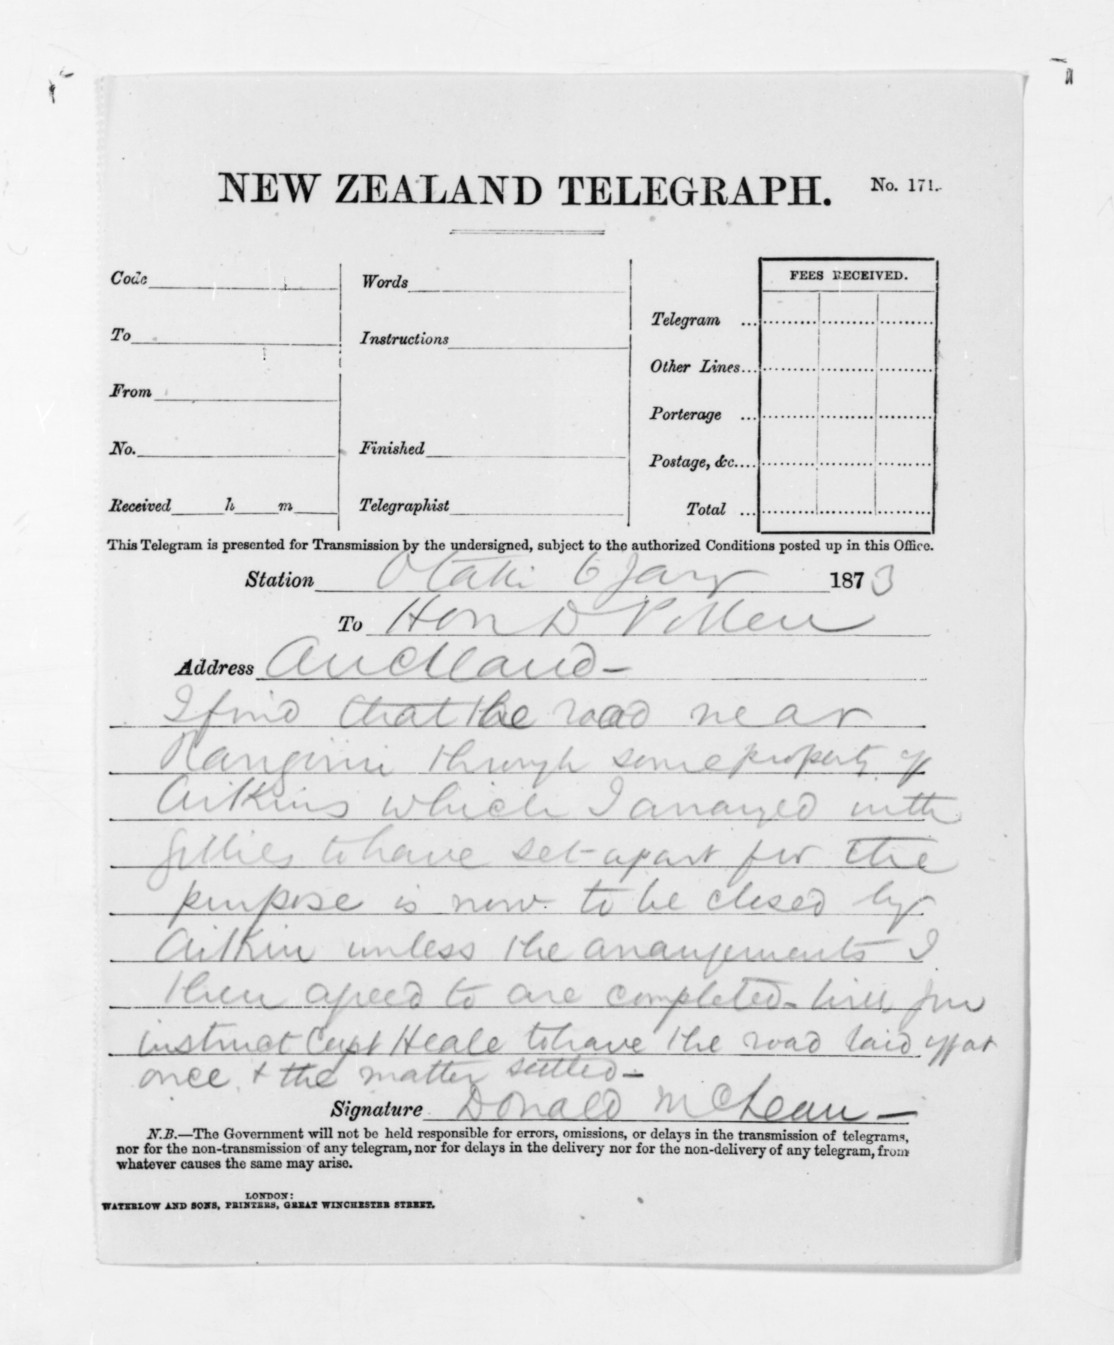 NEW ZEALAND TELEGRAPH. No. 171.
Code
To
From
No.
Received h m
Words
Instructions
Finished
Telegraphist
FEES RECEIVED.
Telegram ...
Other Lines...
Porterage ...
Postage, &c....
Total ...
This Telegram is presented for Transmission by the undersigned, subject to the authorized Conditions posted up in this Office.
Station Otaki 6 Jany 1873
To Hon D Pollen
Address Auckland -
I find that the road near
through some property of
Aitkins which I arranged with
Gillies to have set apart for the
purpose is now to be closed by
Aitkin unless the arrangements I
then agreed to are completed - will you
instruct Capt Heale to have the road laid off at
once & the matter settled -
Signature Donald McLean -
N.B.—The Government will not be held responsible for errors, omissions, or delays in the transmission of telegrams,
nor for the non-transmission of any telegram, nor for delays in the delivery nor for the non-delivery of any telegram, from
whatever causes the same may arise.
LONDON:
WATERLOW AND SONS, PRINTERS, GREAT WINCHESTER STREET.